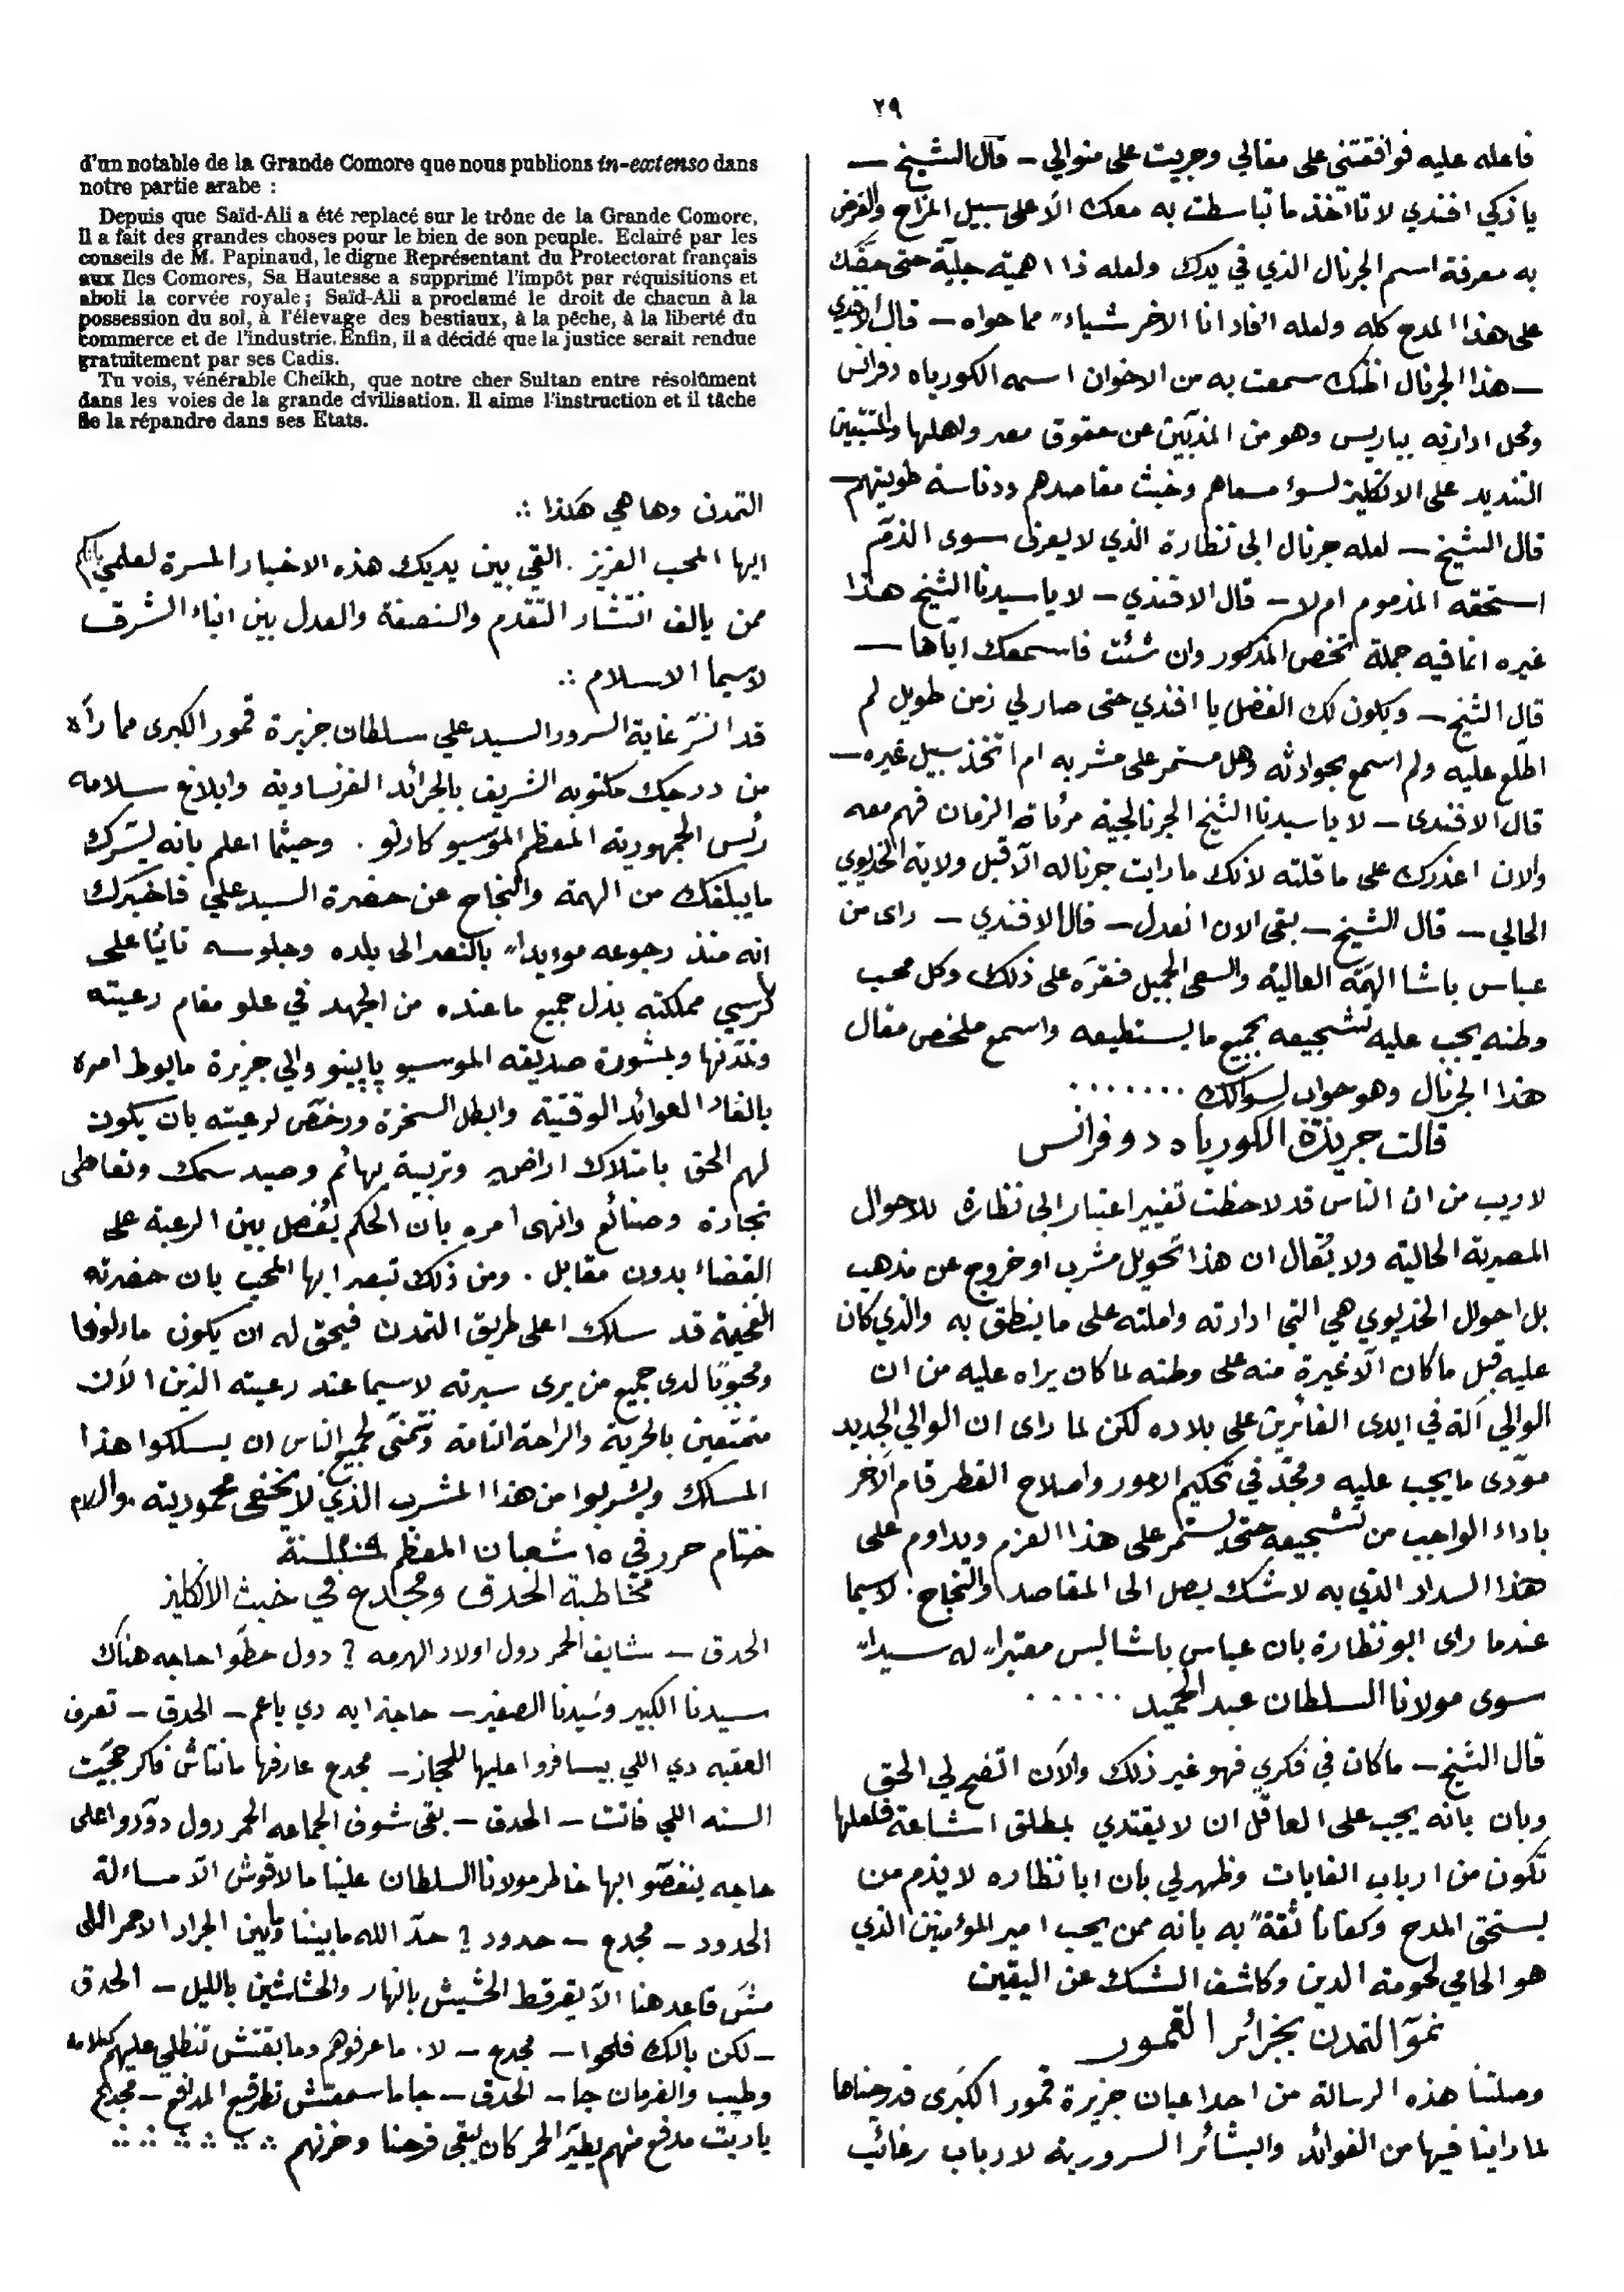 ٢٩
فاعله عليه فوافقتني على مقالي وجريت على منوالي – قال الشيخ –
يا ذكي افندي لا تااخذ ما تباسطت به معك الّا على سبيل المزاح والغرض
به معرفة اسم الجرنال الذي في يدك ولعله ذا اهمية جليّة حتى حضّك
على هذا المدح كله ولعله افادانا الاخر شياء مما حواه – قال الافندي
– هذا الجرنال اظنك سمعت به من الاخوان اسمه الكورياه دفرانس
ومحل ادارته بباريس وهو من المذبّين عن حقوق مصر واهلها والمتبّتين
التنديد على الانكليز لسوء مسعاهم وخبث مقاصدهم ودناسة طويتهم –
قال الشيخ – لعله جرنال ابي نظارة الذي لا يعرف سوى الذمّ
استحقه المذموم ام لا – قال الافندي – لا يا سيدنا الشيخ هذا
غيره انما فيه جملة تخص المذكور وان شئت فاسمعك اياها –
قال الشيخ – ويكون لك الفضل يا افندي حتى صار لي زمن طويل لم
اطّلع عليه ولم اسمع بحوادثه وهل مستمر على مشربه ام اتخذ سبيل غيره –
قال الافندى – لا يا سيدنا الشيخ الجرنالجية مرٔاة الزمان فهم معه
والان اعذرك على ما قلته لانك ما رايت جرناله الّا قبل ولاية الخديوي
الحالي – قال الشيخ – بقى الان انعدل – قال الافندي – راى من
عباس باشا الهمّة العالية والسعى الجميل فنقرّه على ذلك وكل محب
وطنه يجب عليه تشجيعه بجميع ما يستطيعه واسمع ملخص مقال
هذا الجرنال وهو جواب لسوالك . . . . . . .
قالت جريدة الكورياه دوفرانس
لا ريب من ان الناس قد لاحظت تغيير اعتبار ابي نظارة للاحوال
المصرية الحالية ولا يُقال ان هذا تحويل مشرب او خروج عن مذهب
بل احوال الخديوي هي التي ادارته واملته على ما ينطق به والذي كان
عليه قبل ما كان الّا غيرة منه على وطنه لما كان يراه عليه من ان
الوالي آلة في ايدى الغائرين على بلاده لكن لما راى ان الوالي الجديد
مودّى ما يجب عليه ومجدّ في تحكيم الامور واصلاح القطر قام الآخر
باداء الواجب من تشجيعه حتى يستمر على هذا العزم ويداوم على
هذا السداد الذي به لا شك يصل الى المقاصد والنجاح . لاسيما
عندما راى ابو نظارة بان عباس باشا ليس معتبراً له سيداً
سوى مولانا السلطان عبد الحميد . . . . .
قال الشيخ – ما كان في فكري فهو غير ذلك والآن اتضح لي الحق
وبان بانه يجب على العاقل ان لا يقتدي بمطلق اشاعة فلعلها
تكون من ارباب الغايات وظهر لي بان ابا نظاره لا يذم من
يستحق المدح وكفانا ثقةً به بانه ممن يحب امير المؤمنين الذي
هو الحامي لحومة الدين وكاشف الشك عن اليقين
نموّ التمدن بجزائر القمور
وصلتنا هذه الرسالة من احد اعيان جزيرة قمور الكبرى فدرجناها
لما راينا فيها من الفوائد والبشائر السرورية لارباب رغائب
d'un notable de la Grande Comore que nous publions in-extenso dans
notre partie arabe :
Depuis que Saïd-Ali a été replacé sur le trône de la Grande Comore,
Il a fait des grandes choses pour le bien de son peuple. Eclairé par les
conseils de M. Papinaud, le digne Représentant du Protectorat français
aux Iles Comores, Sa Hautesse a supprimé l'impôt par réquisitions et
aboli la corvée royale ; Saïd-Ali a proclamé le droit de chacun à la
possession du sol, à l'élevage des bestiaux, à la pêche, à la liberté du
commerce et de l'industrie. Enfin, il a décidé que la justice serait rendue
gratuitement par ses Cadis.
Tu vois, vénérable Cheikh, que notre cher Sultan entre résolûment
dans les voies de la grande civilisation. Il aime l'instruction et il tâche
de la répandre dans ses Etats.
التمدن وها هي هكذا ∴
ايها المحب العزيز . القي بين يديك هذه الاخبار المسرة لعلمي بانكم
ممن يالف انتشار التقدم والنصفة والعدل بين ابناء الشرق
لاسيما الاسلام ∴
قد انسّر غاية السرور السيد علي سلطان جزيرة قمور الكبرى مما رآه
من درجك مكتوبه الشريف بالجرائد الفرنساوية وابلاغ سلامه
رئس الجمهورية المعظم الموسيو كارنو . وحيثما اعلم بانه يسّرك
ما يبلغك من الهمة والنجاح عن حضرة السيد علي فاخبرك
انه منذ رجوعه مويداً بالنصر الى بلده وجلوسه ثانيًا على
كرسي مملكته بذل جميع ما عنده من الجهد في علو مقام رعيته
وتمدّنها وبمشورة صديقه الموسيو پاپينو والي جزيرة مايوط امره
بالغاء العوائد الوقتيّة وابطل السخرة ورخّص لرعيته بان يكون
لهم الحق بامتلاك اراضٍ وتربية بهائم وصيد سمك وتعاطى
تجارة وصنائع وانهى امره بان الحكم يُفصل بين الرعية على
القضاء بدون مقابل . ومن ذلك تبصر ايها المحب بان حضرته
الفخيمة قد سلك اعلى طريق التمدن فيحق له ان يكون مالوفا
ومحبوبًا لدى جميع من يرى سيرته لاسيما عند رعيته الذين الآن
متمتعين بالحرية والراحة التامة ونتمنّى لجميع الناس ان يسلكوا هذا
المسلك ويشربوا من هذا المشرب الذي لا تخفى محموديته . والسلام
ختام حرر في ١٥ شعبان المعظم سنة ١٣٠٩
مخاطبة الحدق ومجدع في خبث الانكليز
الحدق – شايف الحمر دول اولاد الهرمه ? دول حطّوا حاجه هناك
سيدنا الكبير وسَيدنا الصغير – حاجة ايه دي ياعم – الحدق – تعرف
العقبه دي اللي بيسافروا عليها للحجاز – مجدع عارفها مانتاش فاكر حجّيت
السنه اللي فاتت – الحدق – بقى شوف الجماعه الحمر دول دوّروا على
حاجه ينغصّو ابها خاطر مولانا السلطان علينا ما لاقوش الّا مساءلة
الحدود – مجدع – حدود ? حدّ الله ما بيننا وبين الجراد الاحمر اللى
مشَ قاعد هنا الّا يقرقط الحشيش بالنهار والحشاشين بالليل – الحدق
– لكن بالك فلحوا – مجدع – لا . ما عرفوهم وما بقتش تنطلي عليهم كلامه
وطيب والفرمان جا – الحدق – جا ما سمعتش تطرقيع المدافع – مجدع
ياريت مدفع منهم يطيّر الحمر كان يبقى فرحنا وحزنهم ∴ ∴ ∴ ∴ ∴